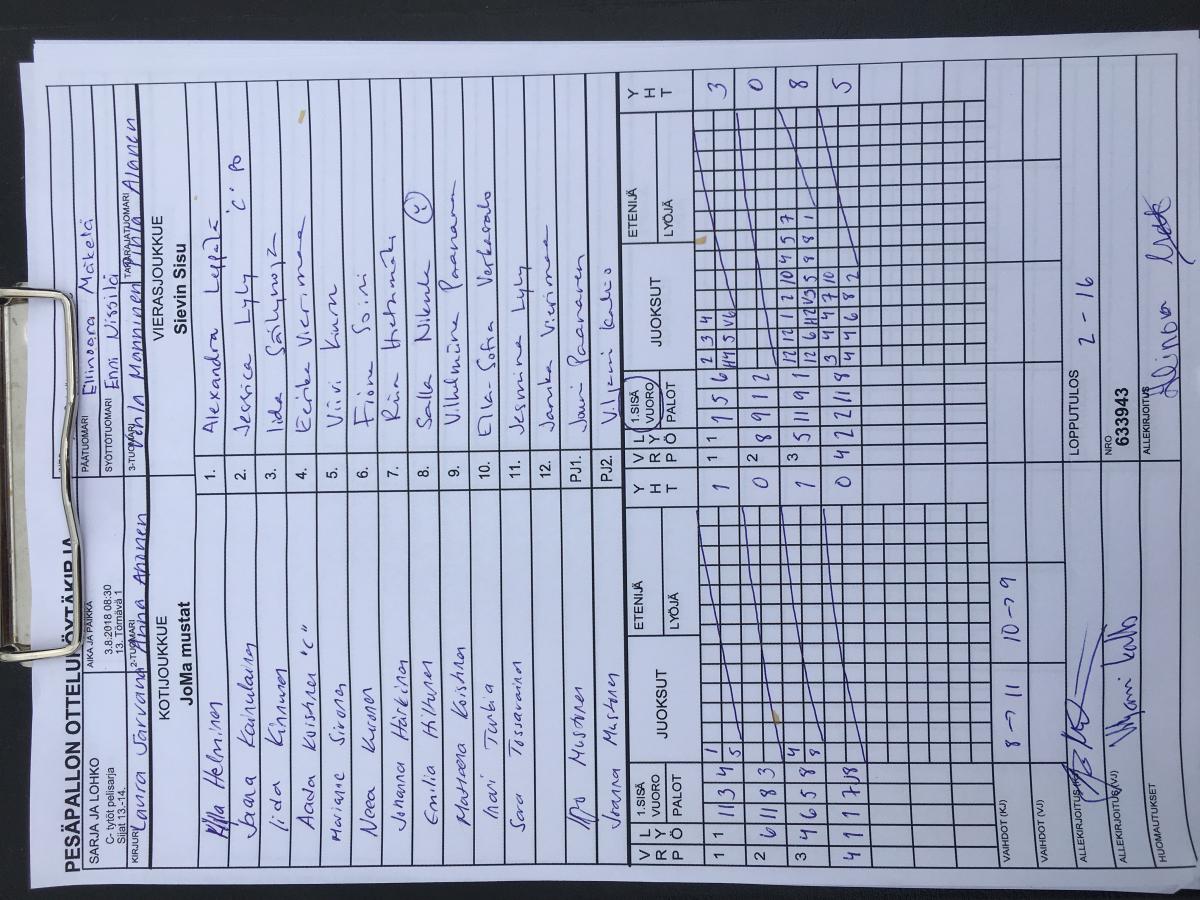 PESÄPALLON OTTELUPÖYTÄKIRJA
SARJA JA LOHKO
C- tytöt pelisarja
Sijat 13.-14.
AIKA JA PAIKKA
3.8.2018 08:30
13. Törnävä 1
PÄÄTUOMARI Ellinoora Mäkelä
SYÖTTÖTUOMARI Enni Nissilä
KIRJURI Laura Järvana
2-TUOMARI Anna Ahonen
3-TUOMARI Pihla Manninen
TAKARAJATUOMARI Pihla Alanen
KOTIJOUKKUE
JoMa mustat
VIERASJOUKKUE
Sievin Sisu
Alla Helminen 1. Alexandra Leppälä
Jaana Kainulainen 2. Jessica Lyly "C" Po
Iida Kinnunen 3. Iida Säkynoja
Aada Koistinen "C" 4. Eerika Vierimaa
Marianne Sivonen 5. Viivi Kuru
Neea Kuronen 6. Fiona Soini
Johanna Härkinen 7. Riia Hietamäki
Emilia Hiltunen 8. Salla Nikula
Matteena Koistinen 9. Vilhelmiina Paananen
Inari Turkia 10. Ella-Sofia Verkasalo
Sara Tossavainen 11. Jesmina Lyly
12. Jannika Vierimaa
Mustonen PJ1. Jouni Paananen
Joanna Mustonen PJ2. Viljami Kalho
V R P L Y Ö 1.SISÄ VUORO PALOT JUOKSUT ETENIJÄ LYÖJÄ Y H T V R P L Y Ö 1.SISÄ VUORO PALOT JUOKSUT ETENIJÄ LYÖJÄ Y H T
1 1 11 3 4 1 5 1 1 1 1 5 6 2 3 4 3
2 6 11 8 3 0 2 8 9 12 0
3 4 6 5 8 4 8 1 3 5 11 9 1 12 12 1 2 10 4 5 7 8
4 1 1 7 18 0 4 2 2 11 8 3 4 4 7 10 4 4 6 8 2 5
VAIHDOT (KJ) 8→11 10→9
VAIHDOT (VJ)
ALLEKIRJOITUS (KJ)
LOPPUTULOS 2-16
ALLEKIRJOITUS (VJ) Viljami Kalho
NRO
633943
HUOMAUTUKSET
ALLEKIRJOITUS